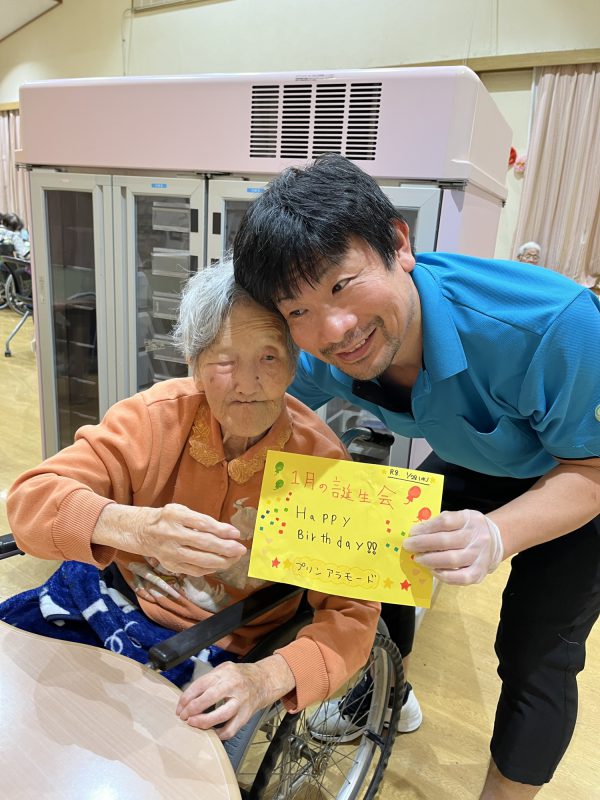 R8. 1/28(水)
1月の誕生会
Happy
Birthday!!
プリンアラモード